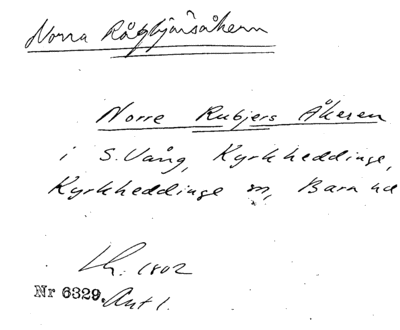 Norra Rågbjärsåkern
Norre Rubjers Åkeren
i S. Vång, Kyrkheddinge,
Kyrkheddinge sn, Bara hd
Lh. 1802
Nr 6329. Akt 1.